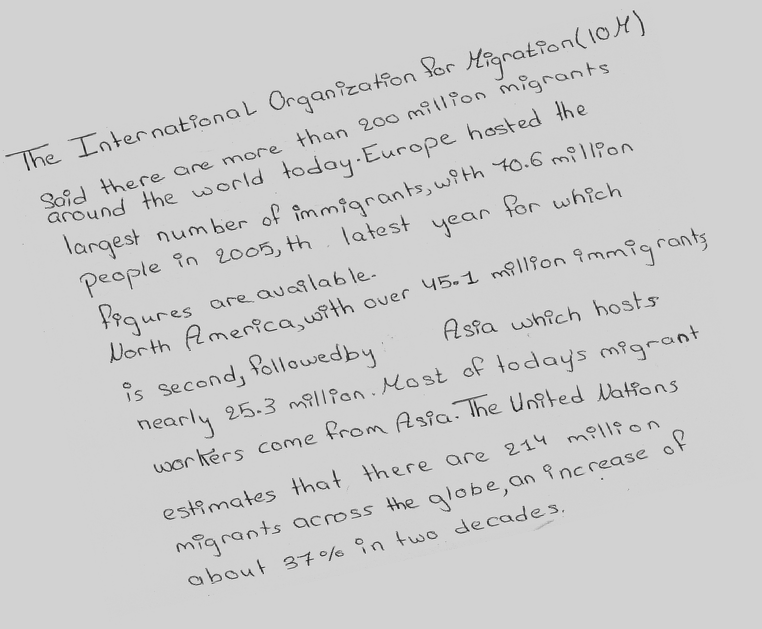 The International Organization for Migration(IOM)
Said there are more than 200 million migrants
around the world today. Europe hosted the
largest number of immigrants, with 70.6 million
people in 2005, th latest year for which
figures are available.
North America, with over 45.1 million immigrants,
is second, followedby Asia which hosts
nearly 25.3 million. Most of today's migrant
workers come from Asia. The United Nations
estimates that there are 214 million
migrants across the globe, an increase of
about 37% in two decades.